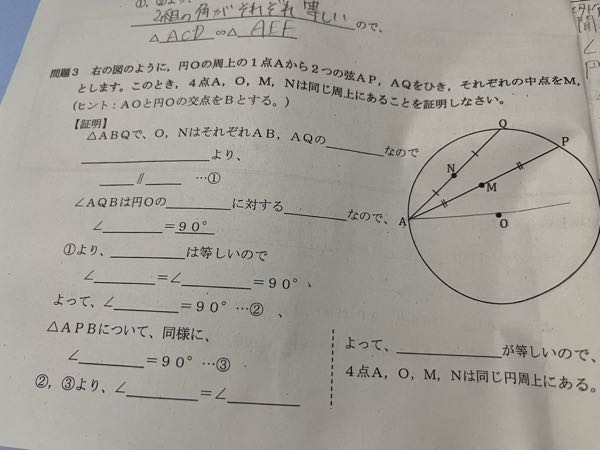 ①, ②より,
2組の角がそれぞれ等しいので、
△ACD∽△AEF
問題3 右の図のように, 円Oの周上の1点Aから2つの弦AP, AQをひき, それぞれの中点をM,
とします。このとき, 4点A, O, M, Nは同じ周上にあることを証明しなさい。
(ヒント:AOと円Oの交点をBとする。)
【証明】
△ABQで, O, NはそれぞれAB, AQの________なので
________より,
____∥____ …①
∠AQBは円Oの________に対する________なので、
∠____=90°
①より, ________は等しいので
∠____=∠____=90°、
よって, ∠____=90°…②、
△APBについて, 同様に、
∠____=90°…③
②, ③より, ∠____=∠____
よって, ________が等しいので,
4点A, O, M, Nは同じ円周上にある。
Q
P
N
M
A
O